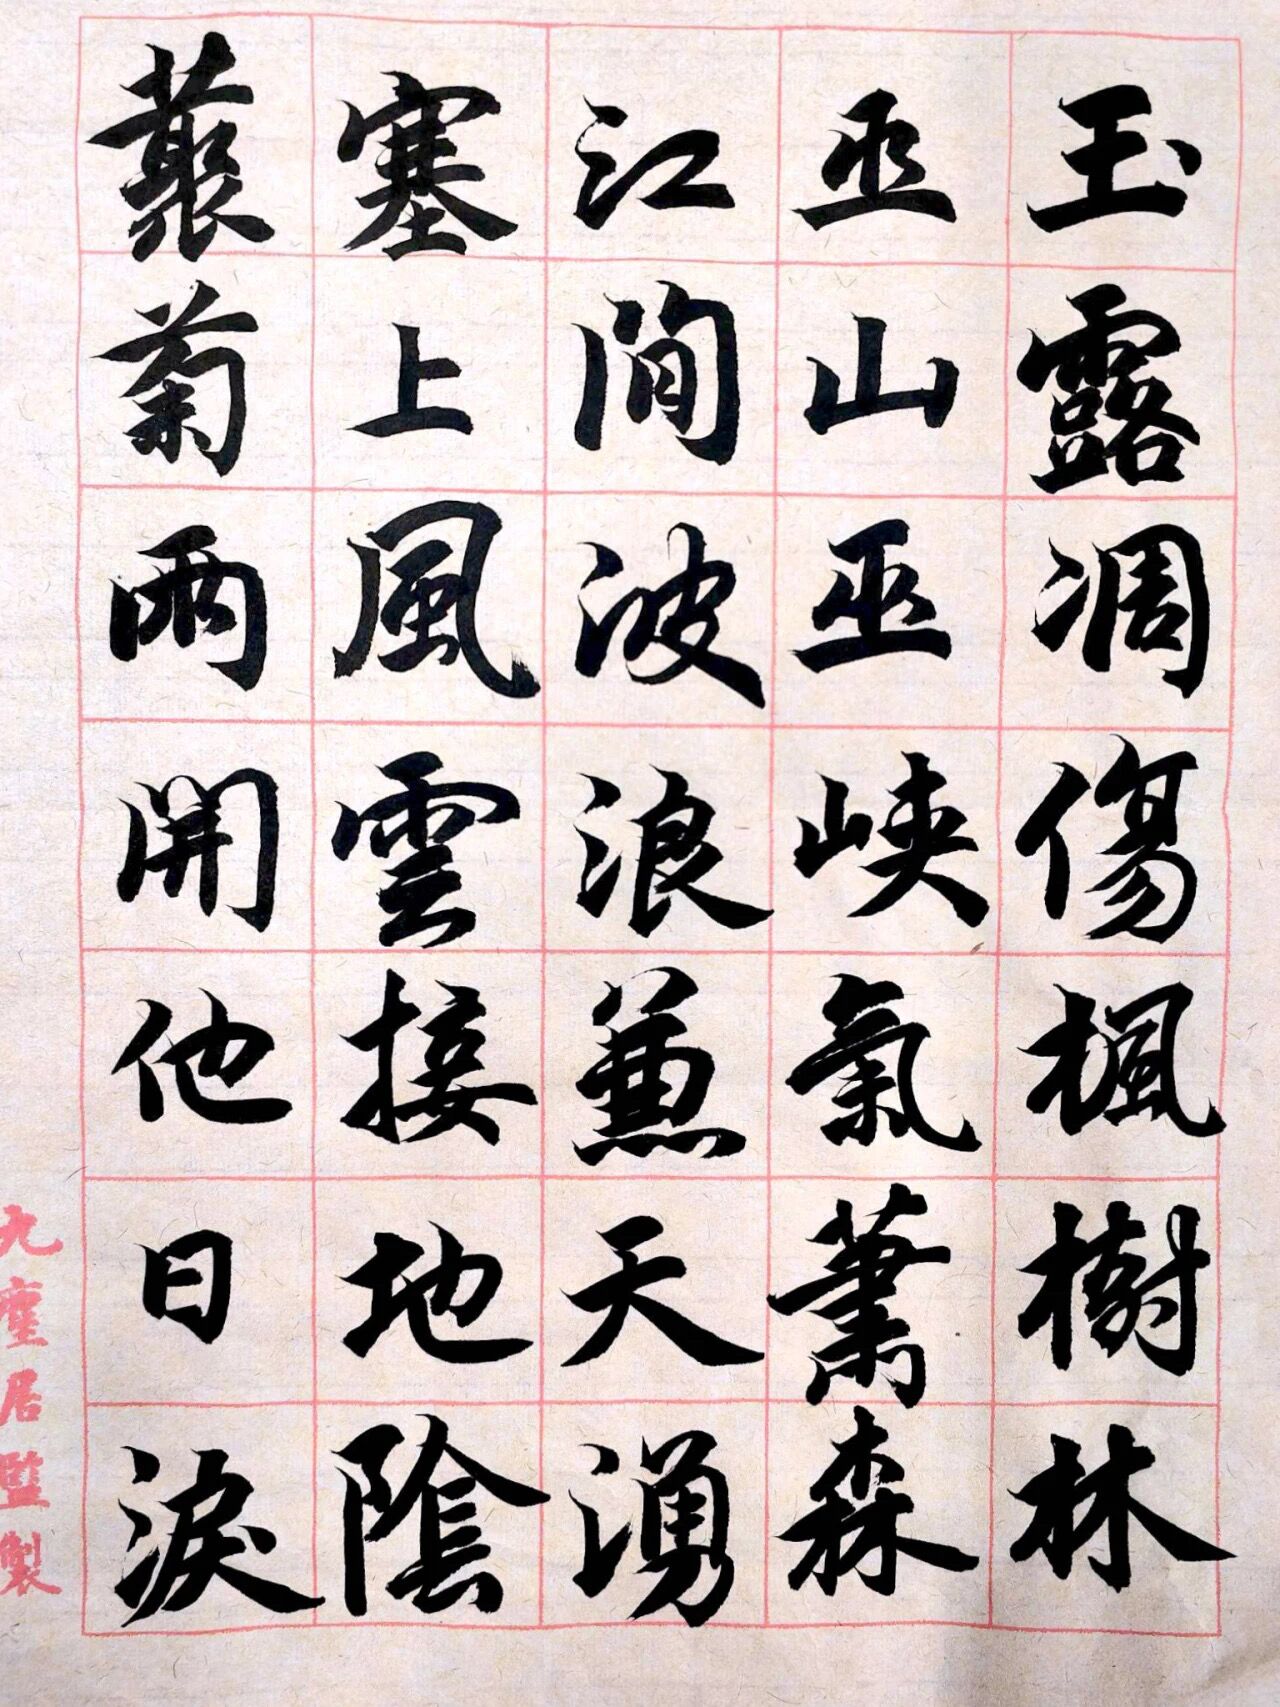 玉露凋傷楓樹林
巫山巫峽氣蕭森
江間波浪兼天湧
塞上風雲接地陰
叢菊兩開他日淚
九壺居監製